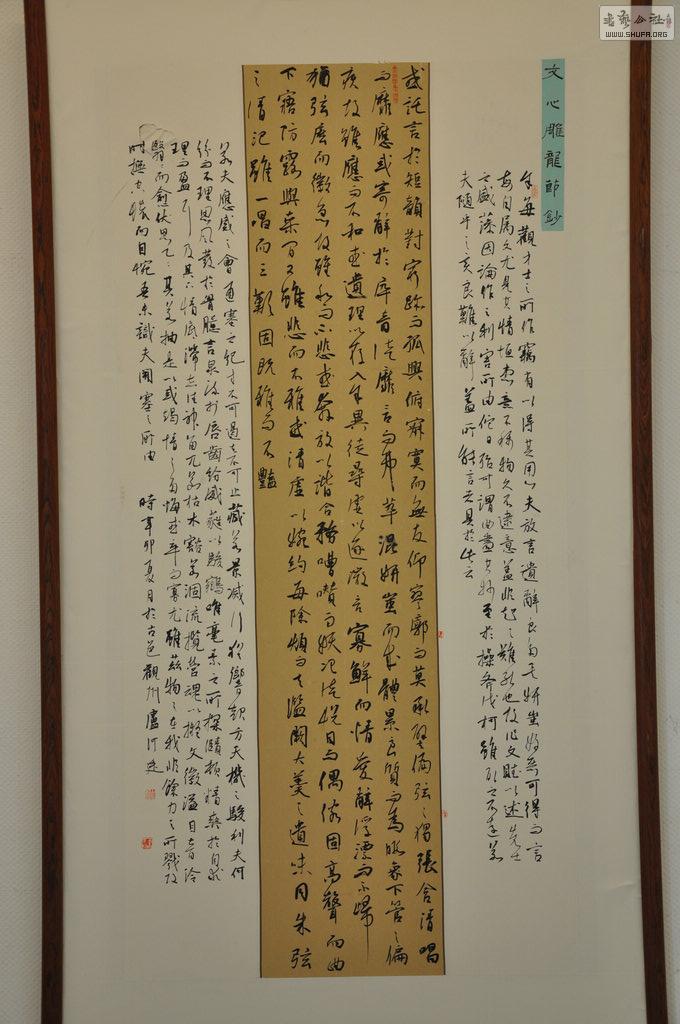 文心雕龍節鈔
余每觀才士之所作竊有以得其用心夫放言遣辭良多變妍蚩好惡可得而言
每自屬文尤見其情恒患意不稱物文不逮意蓋非知之難能也故作文賦以述先士
之盛藻因論作之利害所由佗日殆可謂曲盡其妙至於操斧伐柯雖取之不遠若
夫隨手之變良難以辭蓋所能言者具於此云
或託言於短韻對窮跡而孤興俯寂寞而無友仰寥廓而莫承譬偏弦之獨張含清唱
而靡應或寄辭於瘁音徒靡言而弗華混妍蚩而成體累良質而為瑕象下管之偏
疾故雖應而不和或遺理以存異徒尋虛以逐微言寡鮮而情愛辭浮漂而不歸
猶弦麼而徽急故雖和而不悲或奔放以諧合務嘈囋而妖冶徒悅目而偶俗固高聲而曲
下寤防露與桑間又雖悲而不雅或清虛以婉約每除煩而去濫闕大羹之遺味同朱弦
之清氾雖一唱而三歎固既雅而不豔
若夫應感之會通塞之紀來不可遏去不可止藏若景滅行猶響起方天機之駿利夫何
紛而不理思風發於胸臆言泉流於唇齒紛葳蕤以唯毫素之所探賾頓精爽於自求
理而盈引及其六情底滯志往神留兀若枯木豁若涸流攬營魂以擬文徽溢目音泠
翳而愈伏思乙乙其若抽是以或竭情而多悔或率而寡尤雖茲物之在我非餘力之所戮故
時撫空懷而自惋吾未識夫開塞之所由 時辛卯夏月於古邑觀州盧行
書藝公社
WWW.SHUFA.ORG